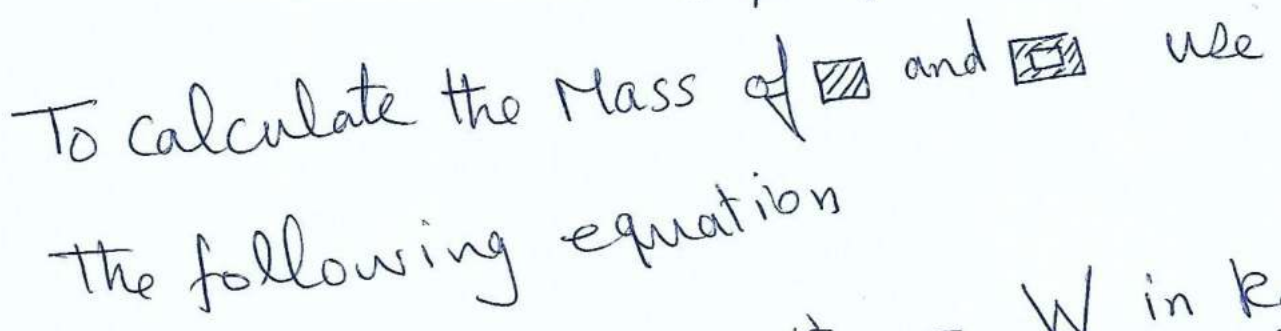 To calculate the Mass of ▨ and ▣ use
the following equation
W in